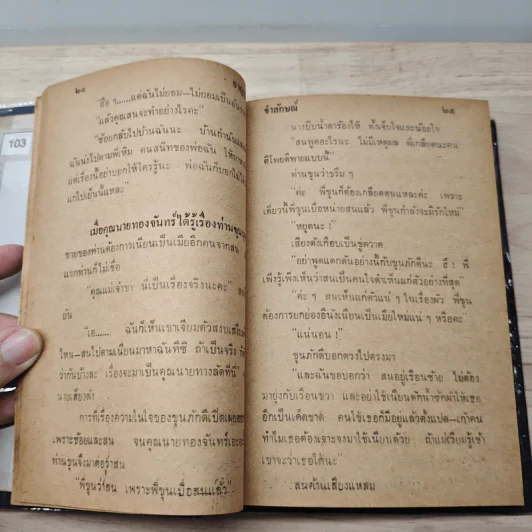 103
๒๔
"ฮือ ๆ......แต่ฉันไม่ยอม—ไม่ยอมเป็นอัน
"แล้วคุณสนจะทำอย่างไรคะ"
"ช้อยกลับไปบ้านฉันนะ บ้านกำนัน
ฉันน่ะไปตามพี่หิม คนสนิทของพ่อฉัน ให้
แต่เรื่องนี้อย่าบอกให้ใครรู้นะ พ่อฉันก็บอกไม่
แกไปเย็นนี้แหละ"
เมื่อคุณนายทองจันทร์ได้รู้เรื่องท่านขุน
ชายของท่านต้องการเนียนเป็นเมียอีกคนจาก
แรกท่านก็ไม่เชื่อ
"คุณแม่เจ้าขา นี่เป็นเรื่องจริงนะคะ"
ยัน
"เอ...... ฉันก็เห็นเขาเจียมตัวสงบเสงี่ยม
ไหน—สนไปตามเนียนมาหาฉันทีซิ ถ้าเป็นจริง
ว่ากันบ้างละ เรื่องจะมาเป็นคุณนายทางลัดที่นี่
นายเสียงดำ
การที่เรื่องความในใจของขุนภักดีเปิดเผย
เพราะช้อยและสน จนคุณนายทองจันทร์เอะอะ
ท่านขุนจึงมาดอรู่าสน
"พี่ขุนว่าสน เพราะพี่ขุนเบื่อสนแล้ว"
จำลักษณ์
๒๕
นางบีบน้ำตาร้องไห้ ทั้งเจ็บใจและน้อยใจ
"สนพูดอะไรนะ ไม่มีเหตุผล พี่เกลียดนะคน
ตีโพยตีพายแบบนี้"
ท่านขุนว่าขรึม ๆ
"ค่ะ พี่ขุนก็ต้องเกลียดสนแหละค่ะ เพราะ
เดี๋ยวนี้พี่ขุนเบื่อหน่ายสนแล้ว พี่ขุนกำลังจะมีรักใหม่"
"หยุดนะ !"
เสียงดังเกือบเป็นขู่ตวาด
"อย่าพูดแดกดันอย่างนี้กับขุนภักดีนะ ฮึ ! พี่
เพิ่งรู้เพิ่งเห็นว่าสนเป็นคนใจดำเห็นแก่ตัวอย่างที่สุด"
"ค่ะ ๆ สนเห็นแก่ตัวแน่ ๆ ในเรื่องผัว พี่ขุน
ต้องการยกย่องอีนังเนียนเป็นเมียใหม่แน่ ๆ หรือคะ"
"แน่นอน !"
ขุนภักดีบอกตรงไปตรงมา
"และฉันขอบอกว่า สนอยู่เรือนซ้าย ไม่ต้อง
มายุ่งกับเรือนขวา และอย่าใช้เนียนตักน้ำซักผ้าให้เธอ
อีกเป็นเด็ดขาด คนใช้เธอก็มีอยู่แล้วตั้งแปด—เก้าคน
ทำไมเธอต้องเจาะจงมาใช้เนียนด้วย ถ้าแม่เรียมรู้เข้า
เขาจะว่าเธอได้นะ"
สนค้านเสียงแหลม